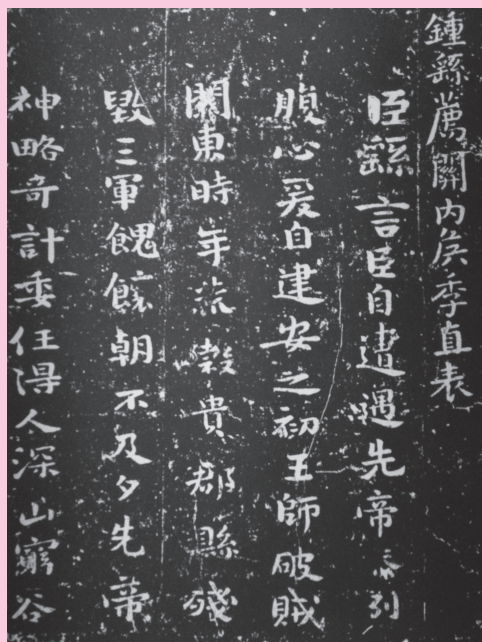 鍾繇薦關内侯季直表
臣繇言臣自遭遇先帝忝列
腹心爰自建安之初王師破賊
關東時年荒穀貴郡縣殘
毀三軍餽饟朝不及夕先帝
神略奇計委任得人深山窮谷